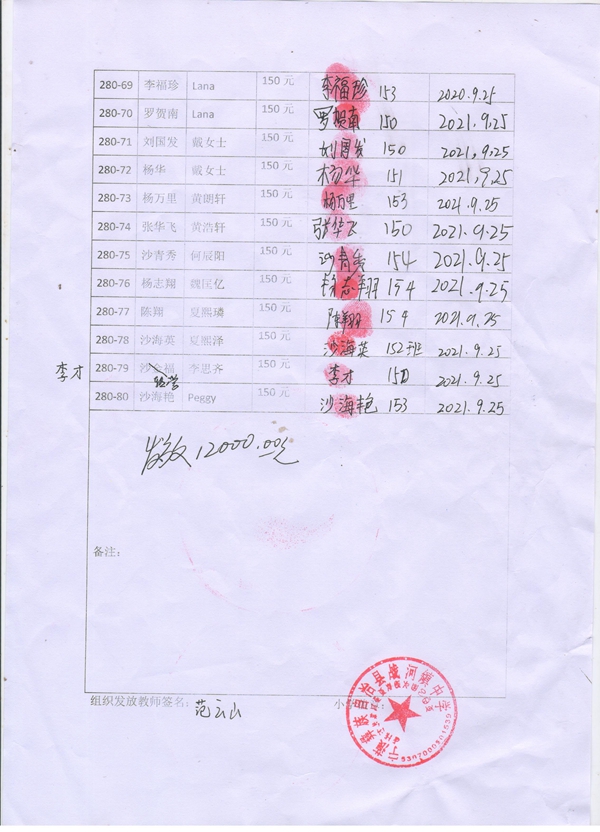 280-69 李福珍 Lana 150 元 李福珍 153 2020.9.25
280-70 罗贺南 Lana 150 元 罗贺南 150 2021.9.25
280-71 刘国发 戴女士 150 元 刘国发 150 2021.9.25
280-72 杨华 戴女士 150 元 杨华 151 2021.9.25
280-73 杨万里 黄朗轩 150 元 杨万里 153 2021.9.25
280-74 张华飞 黄浩轩 150 元 张华飞 150 2021.9.25
280-75 沙青秀 何辰阳 150 元 沙青秀 154 2021.9.25
280-76 杨志翔 魏匡亿 150 元 杨志翔 154 2021.9.25
280-77 陈翔 夏熙璘 150 元 陈翔 154 2021.9.25
280-78 沙海英 夏熙泽 150 元 沙海英 152班 2021.9.25
李才 280-79 沙金福 李思齐 150 元 李才 150 2021.9.25
280-80 沙海艳 Peggy 150 元 沙海艳 153 2021.9.25
发放12000.00元
备注:
组织发放教师签名: 范云山
宁蒗彝族自治县战河镇中学